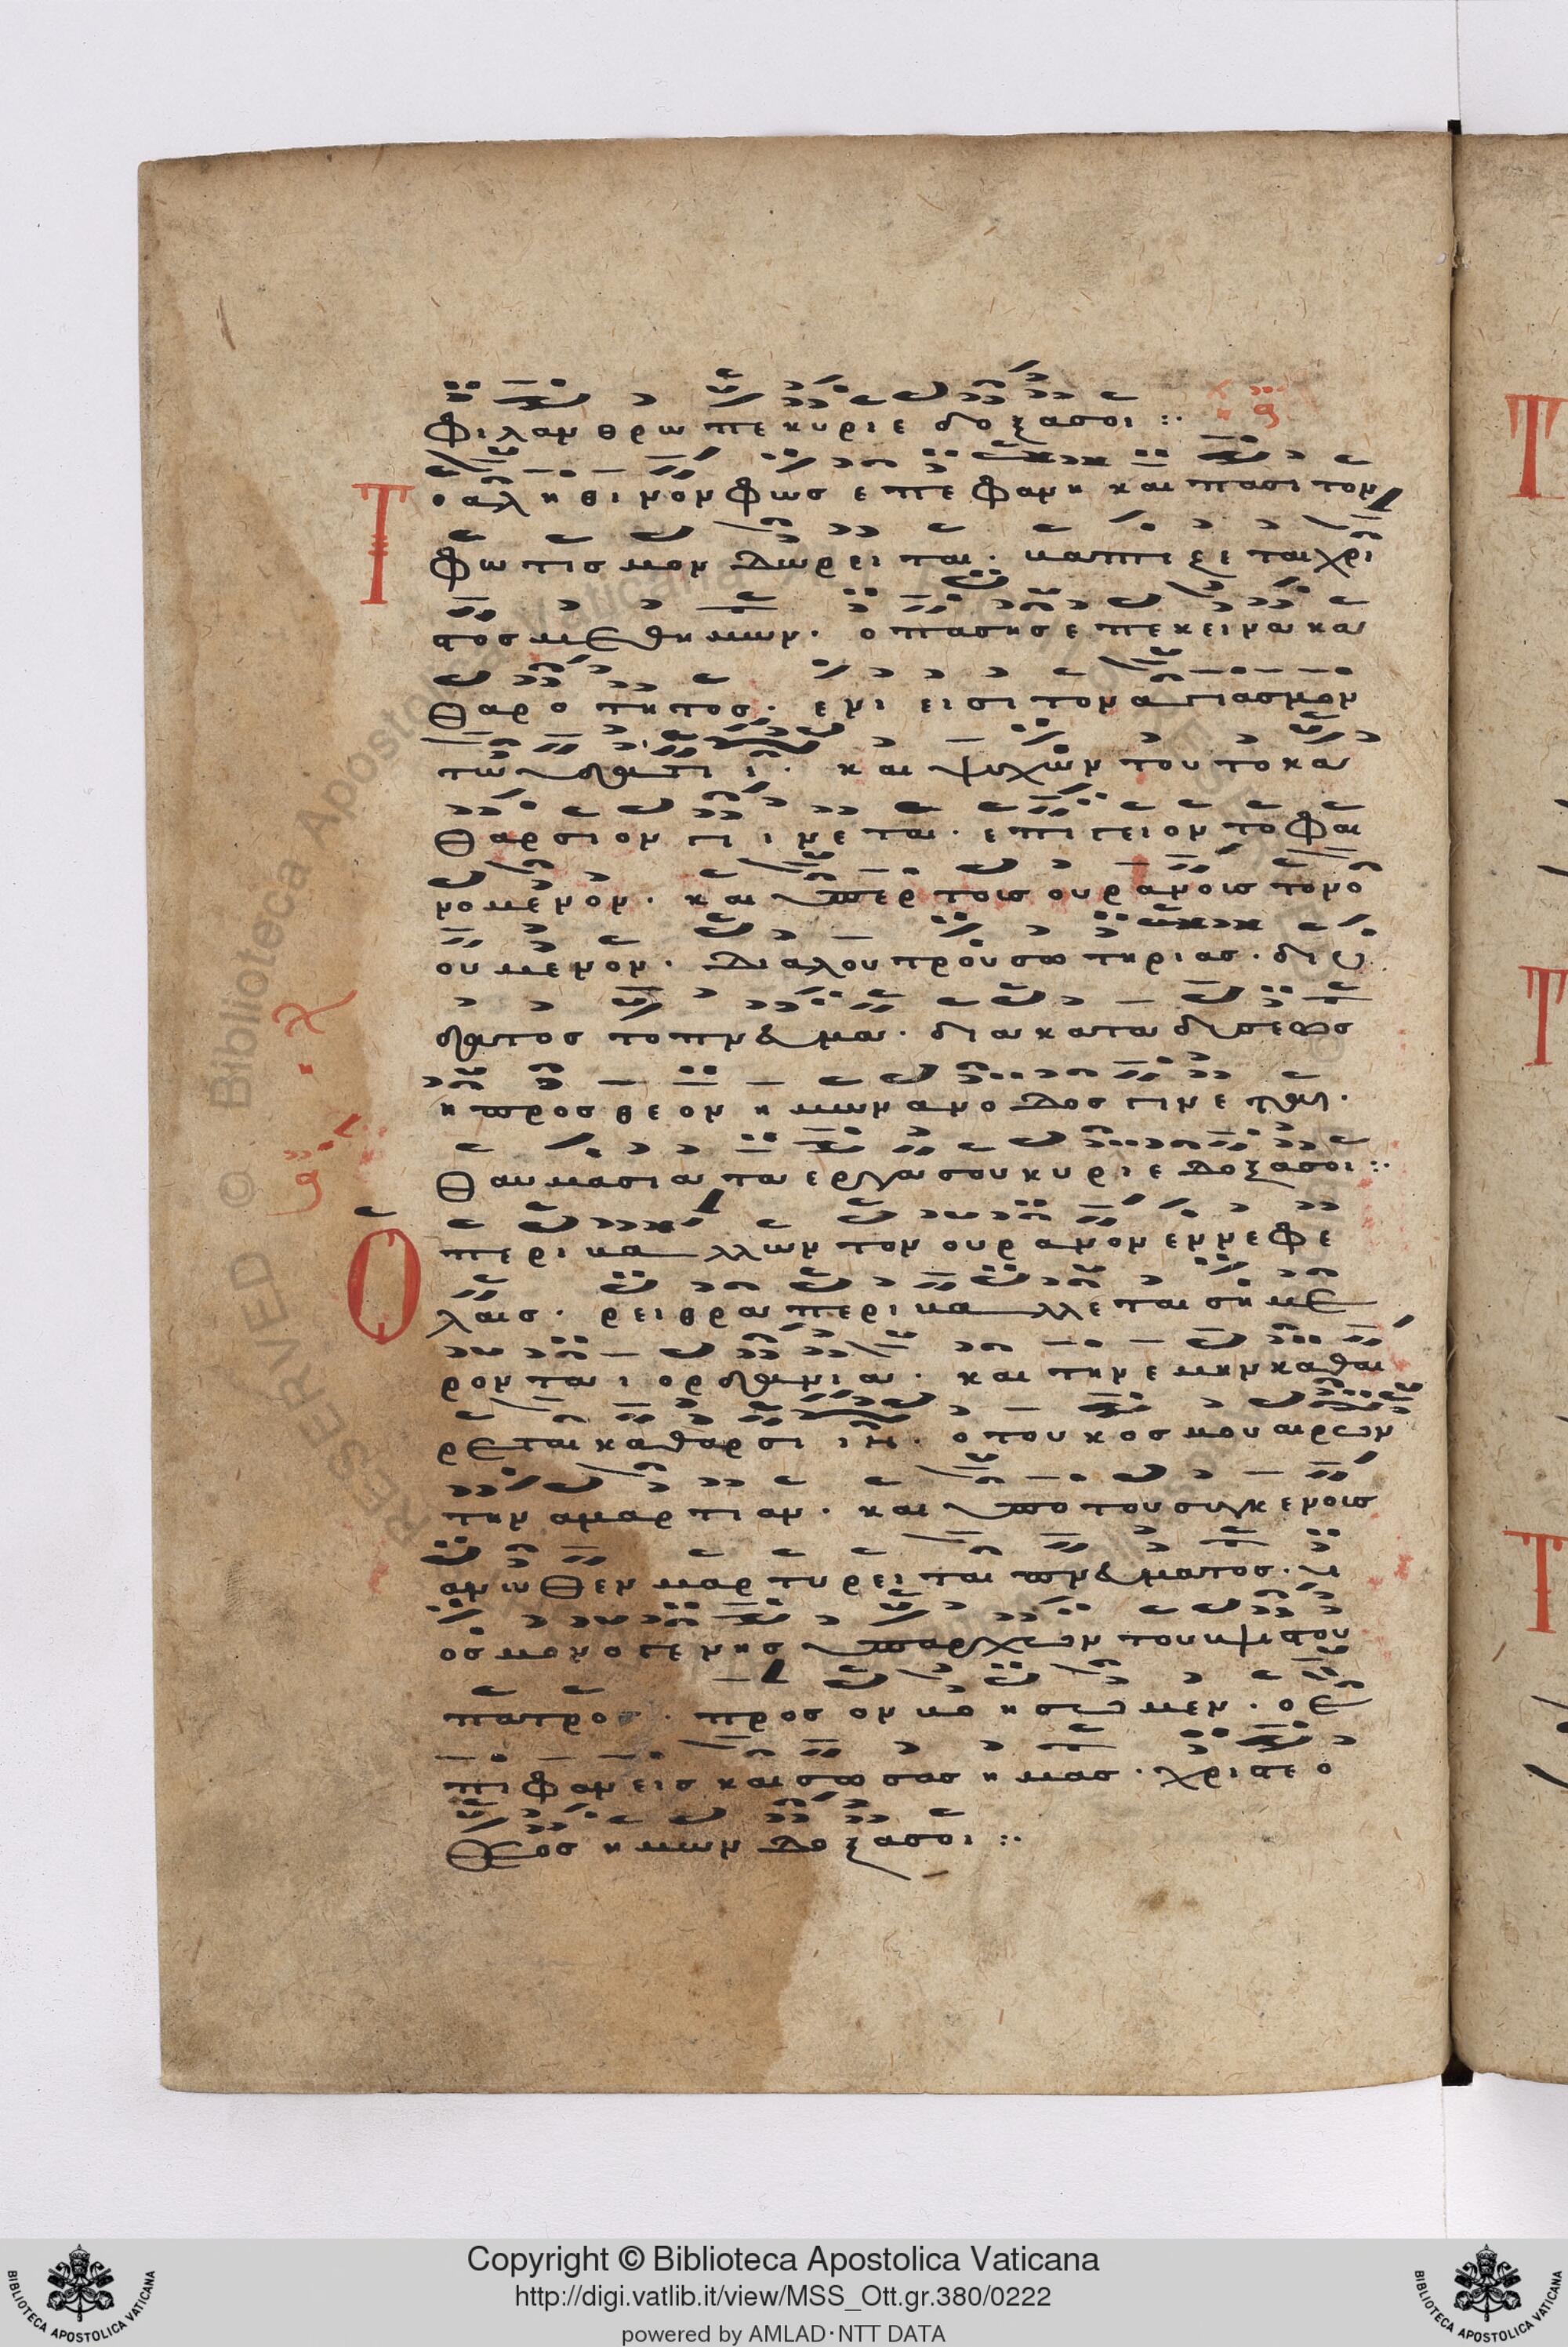 φιλανθρωπε κυριε δοξασοι :·
Το αληθινον φως επεφανη και πασι τον
φωτισμον δωρειται · βαπτιζεται χρι
στος μεθ ημων · ο πασης επεκεινα κα
θαροτητος · ενιεισι τον αγιασμον
τω υδατι · και ψυχων τουτο κα
θαρσιον γινεται · επιγειον το φαι
νομενον · και υπερ τοις ουρανοις το νο
ουμενον · δια λουτρου σωτηριας · δι υ
δατος το πνευμα · δια καταδυσεως
η προς θεον ημων ανοδος γινεται ·
θαυμασια τα εργα σου κυριε δοξασοι :·
Ο περιβαλλων τον ουρανον εν νεφε
λαις · ρειθρα περιβαλλεται σημε
ρον τα ιορδανια · και την εμην καθαι
ρεται καθαρσιν · ο του κοσμου αιρων
την αμαρτιαν · και υπο του συγγενοις
ανωθεν μαρτυρειται πνευματος · υι
ος μονογενης υπαρχων του υψιστου
πατρος · προς ον βοησωμεν · ο ε
πιφανεις και σωσας ημας · χριστε ο
θεος ημων δοξασοι :·
RESERVED © Biblioteca Apostolica Vaticana
Copyright © Biblioteca Apostolica Vaticana
http://digi.vatlib.it/view/MSS_Ott.gr.380/0222
powered by AMLAD·NTT DATA
BIBLIOTECA APOSTOLICA VATICANA
BIBLIOTECA APOSTOLICA VATICANA